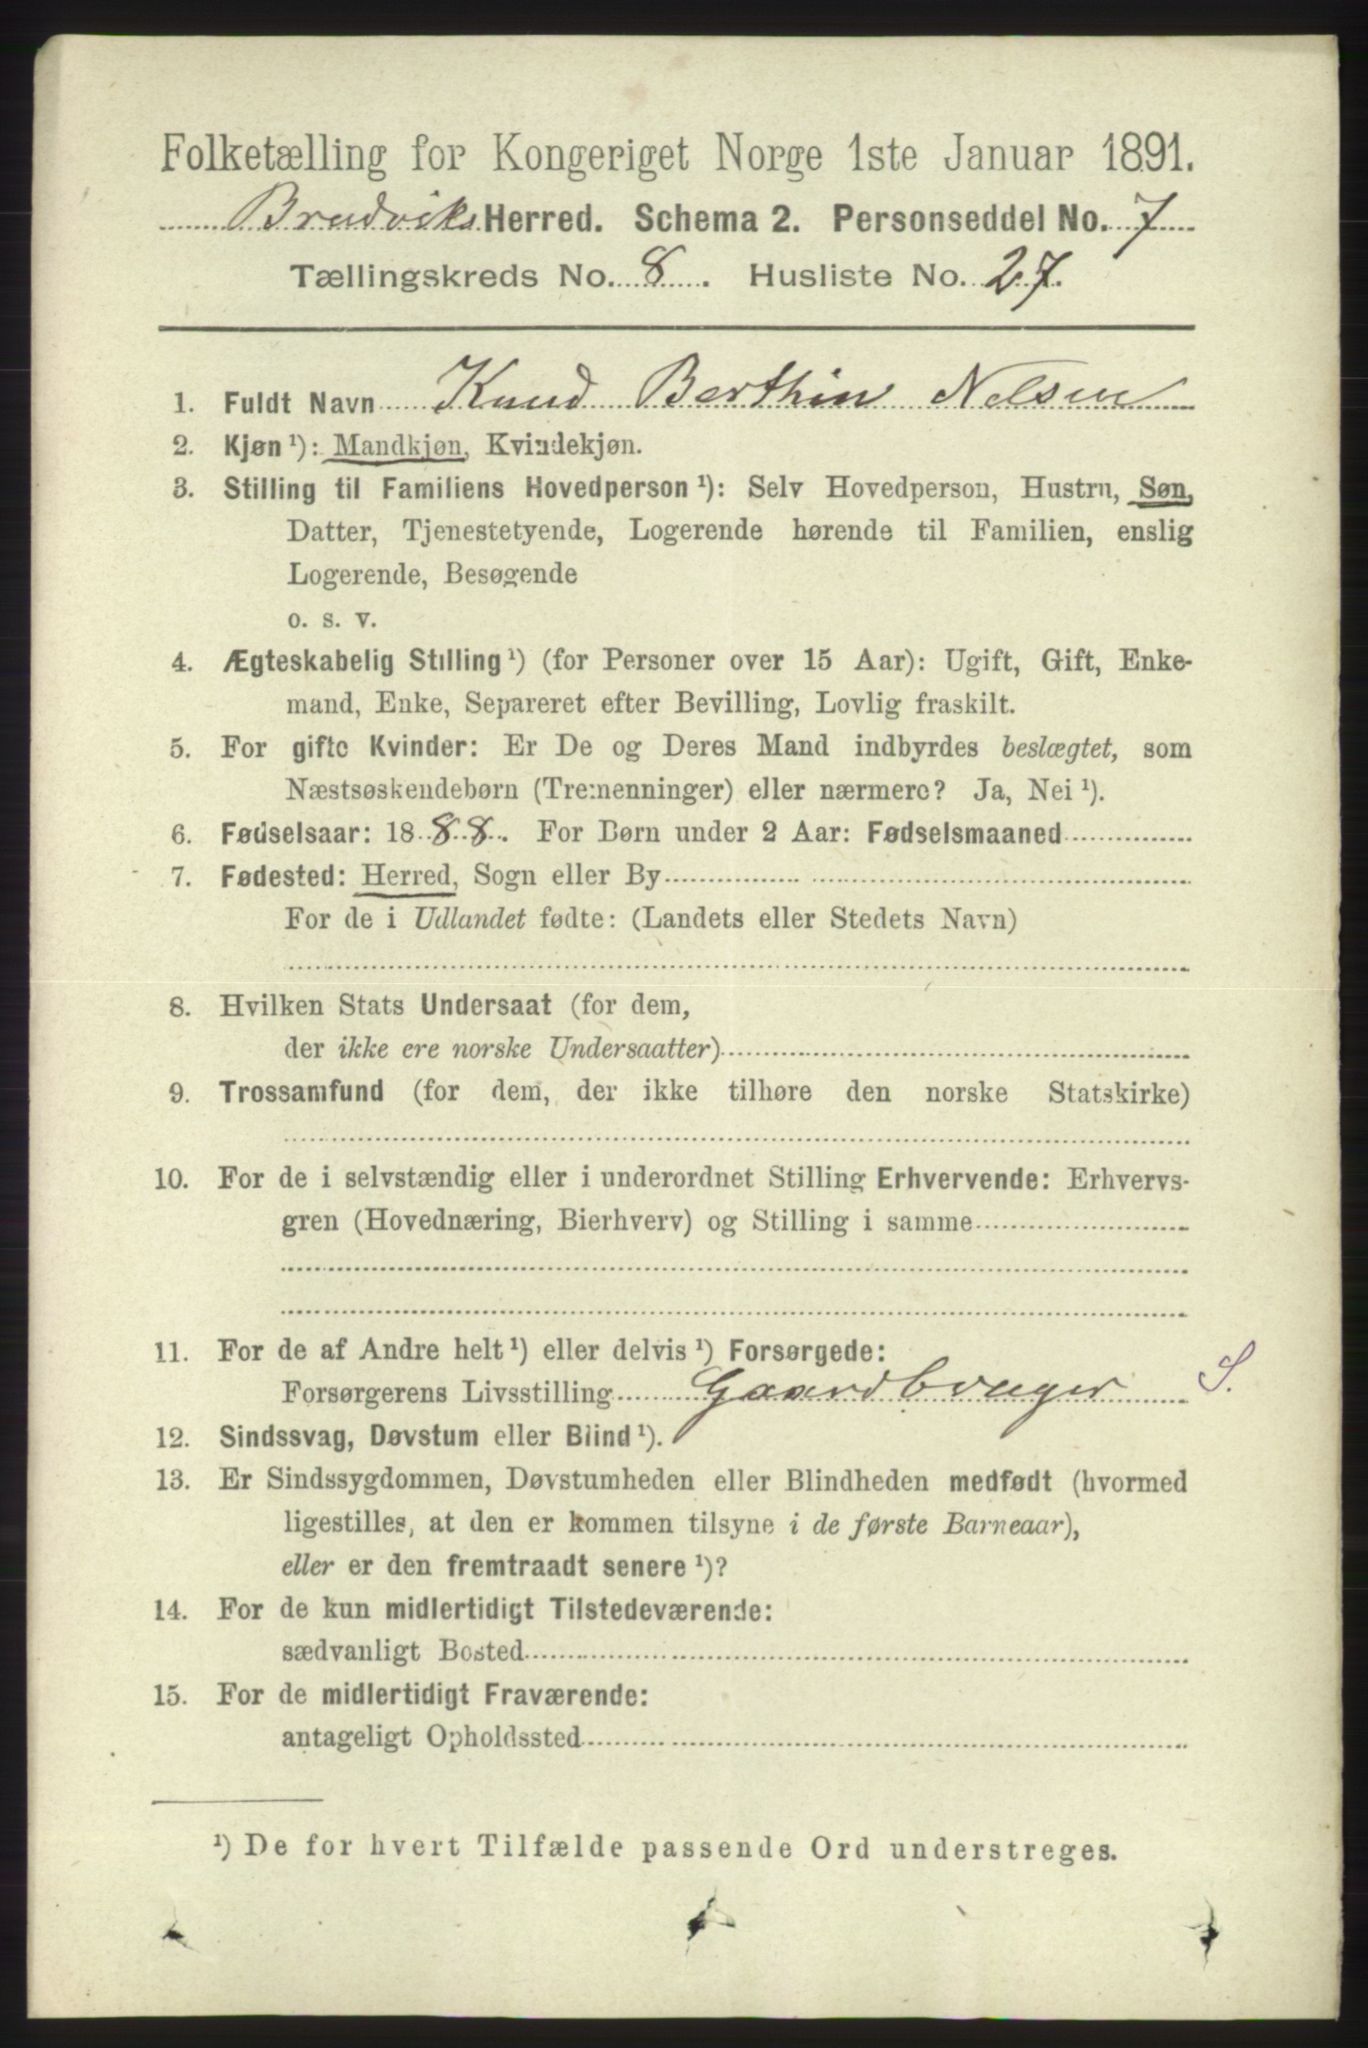 Folketælling for Kongeriget Norge 1ste Januar 1891.
Bruviks Herred. Schema 2. Personseddel No. 7
Tællingskreds No. 8. Husliste No. 27.
1. Fuldt Navn Knud Berthin Nelsen
2. Kjøn ¹): Mandkjøn, Kvindekjøn.
3. Stilling til Familiens Hovedperson ¹): Selv Hovedperson, Hustru, Søn,
Datter, Tjenestetyende, Logerende hørende til Familien, enslig
Logerende, Besøgende
o. s. v.
4. Ægteskabelig Stilling ¹) (for Personer over 15 Aar): Ugift, Gift, Enke-
mand, Enke, Separeret efter Bevilling, Lovlig fraskilt.
5. For gifte Kvinder: Er De og Deres Mand indbyrdes beslægtet, som
Næstsøskendebørn (Tremenninger) eller nærmere? Ja, Nei ¹).
6. Fødselsaar: 1888. For Børn under 2 Aar: Fødselsmaaned
7. Fødested: Herred, Sogn eller By
For de i Udlandet fødte: (Landets eller Stedets Navn)
8. Hvilken Stats Undersaat (for dem,
der ikke ere norske Undersaatter)
9. Trossamfund (for dem, der ikke tilhøre den norske Statskirke)
10. For de i selvstændig eller i underordnet Stilling Erhvervende: Erhvervs-
gren (Hovednæring, Bierhverv) og Stilling i samme
11. For de af Andre helt ¹) eller delvis ¹) Forsørgede:
Forsørgerens Livsstilling Gaardbruger S.
12. Sindssvag, Døvstum eller Blind ¹).
13. Er Sindssygdommen, Døvstumheden eller Blindheden medfødt (hvormed
ligestilles, at den er kommen tilsyne i de første Barneaar),
eller er den fremtraadt senere ¹)?
14. For de kun midlertidigt Tilstedeværende:
sædvanligt Bosted
15. For de midlertidigt Fraværende:
antageligt Opholdssted
¹) De for hvert Tilfælde passende Ord understreges.